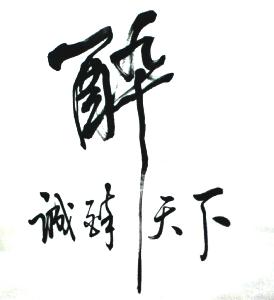 酔
诚醉天下